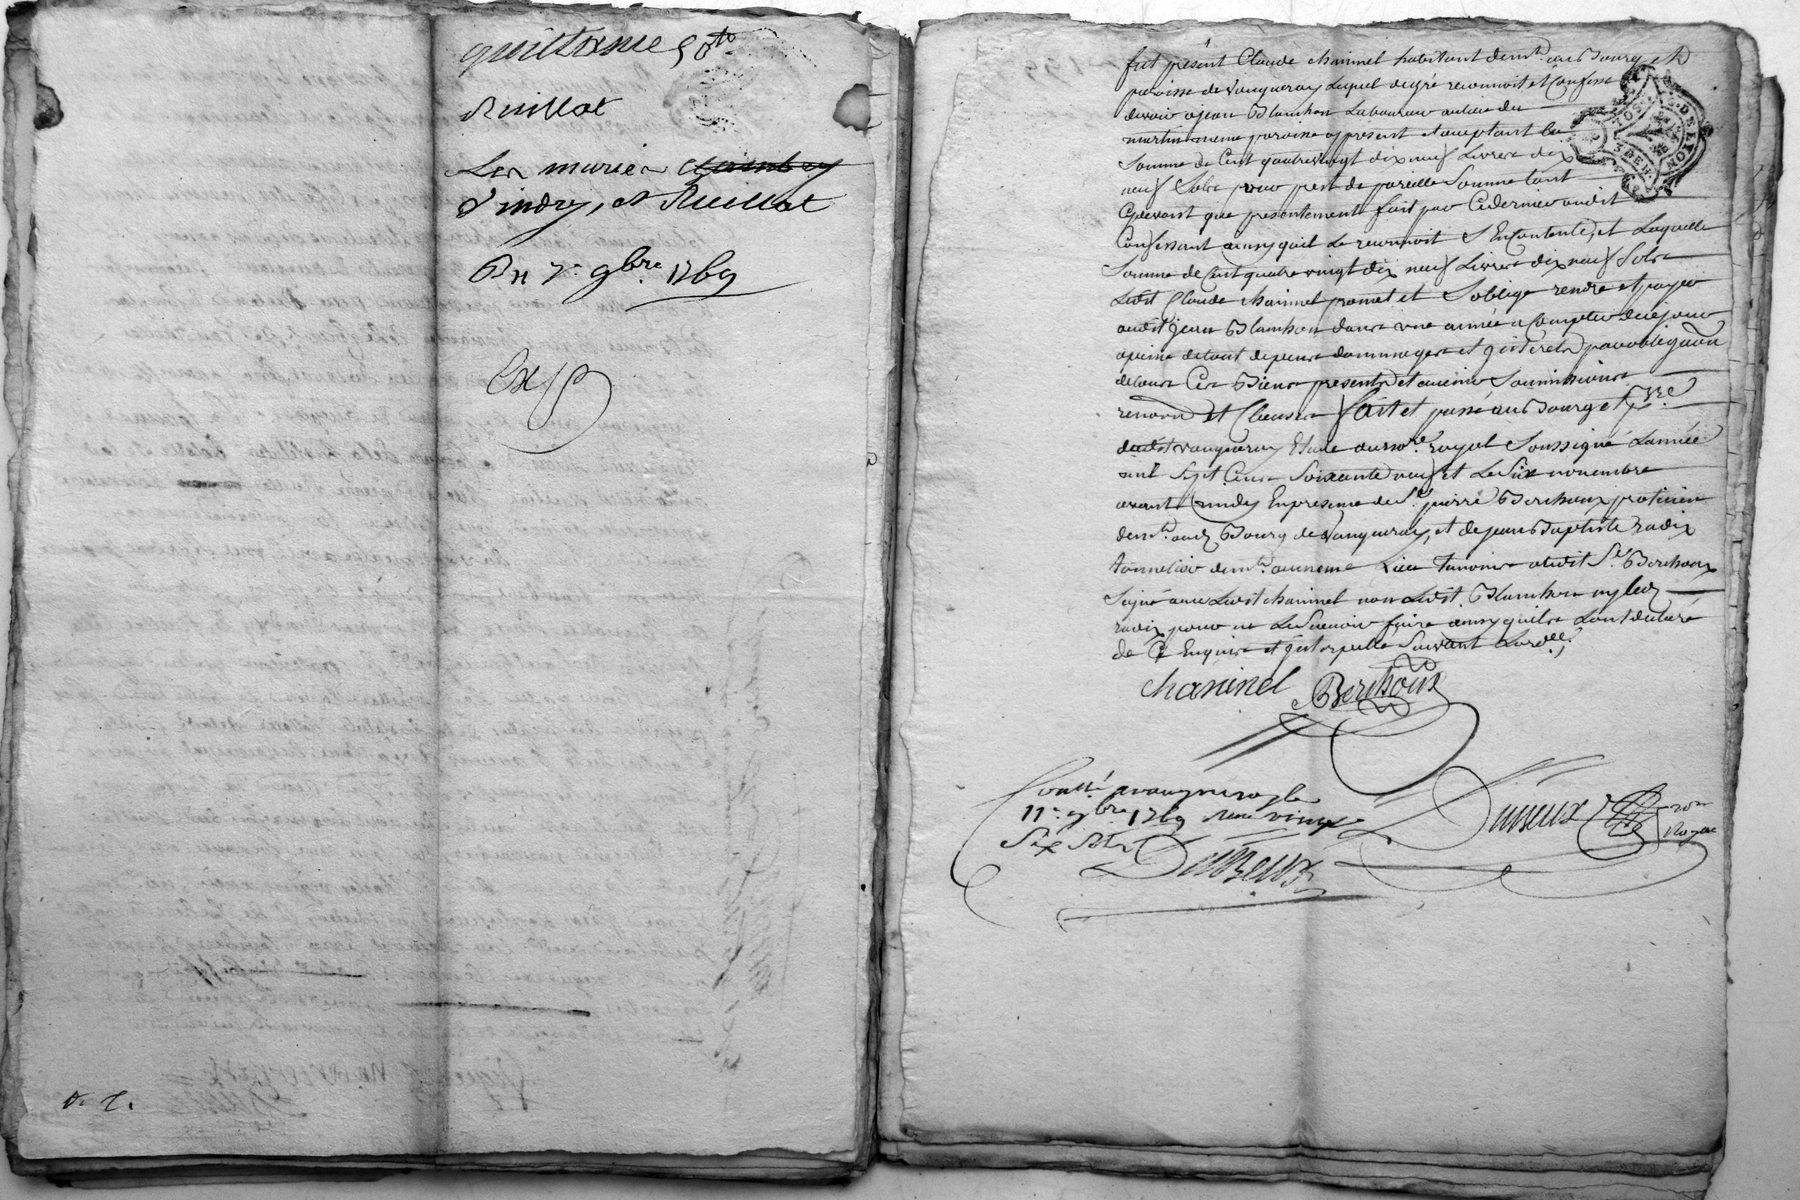 quittance 58ᵗᵒ
Ruillat
Les mariés
d'indry, et Ruillat
Du 7ᵉ 9bre 1769
Exp
D. C.
fut présent Claude chaninel habitant demᵗ au Bourg et
paroisse de vaugneray Lequel de gré reconnoit et Confesse
devoir a jean Blanchon Laboureur au lieu du
martin meme paroisse a present et acceptant la
Somme de Cent quatre vingt dix neuf Livres dix
neuf Sols pour prest de pareille Somme tant
cydevant que presentement fait par Ce dernier audit
Confessant ainsy quil Le reconnoit S'En Contente, et Laquelle
Somme de Cent quatre vingt dix neuf Livres dix neuf Sols
Ledit Claude chaninel promet et S'oblige rendre et payer
audit jean Blanchon dans une année a Compter de ce jour
a peine de tout depens dommages et interets par obligaon
de tous Ces Biens presents et avenir Soumissions
renonn et Clauses fait et passé au Bourg et psse
dudit vaugneray Etude du nore royal Soussigné L'année
mil Sept Cent Soixante neuf et Le Six novembre
avant midy En presence de Sr pierre Berthoux praticien
demt aud Bourg de vaugneray, et de jean Baptiste radix
tonnelier demt au meme Lieu temoins Ledit Sr Berthoux
Signé avec Ledit chaninel non Ledit Blanchon ny Led
radix pour ne Le Scavoir faire ainsy quils L'ont declaré
de Ce Enquis et interpellé Suivant L'ordce
chaninel Berthoux
Conllé a vaugneray le
11e 9bre 1769 Reçu vingt
Six Sols
Dusseux
Dusseux
nore
Royal